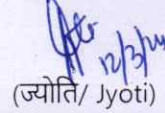 12/3/24
(ज्योति/ Jyoti)